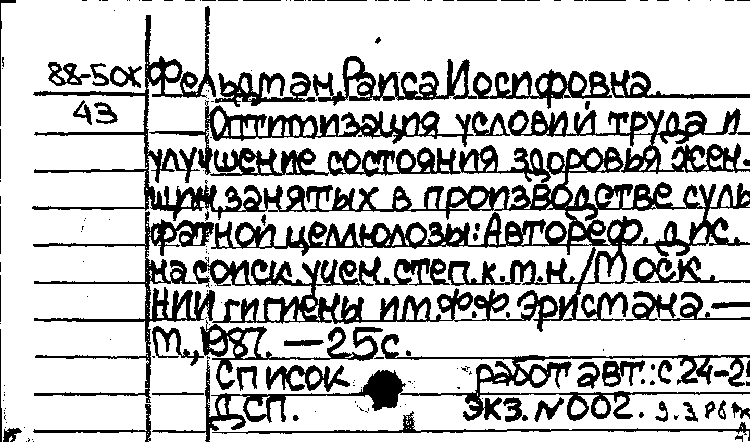 88-50к Фельдман, Раиса Иосифовна.
43 Оптимизация условий труда и
улучшение состояния здоровья жен-
щин, занятых в производстве суль
фатной целлюлозы: Автореф. дис.
на соиск. учен. степ. к.м.н. / Моск.
НИИ гигиены им. Ф.Ф. Эрисмана. —
М., 1987. — 25с.
Список работ авт.: с. 24-25
ДСП. Экз. №002.